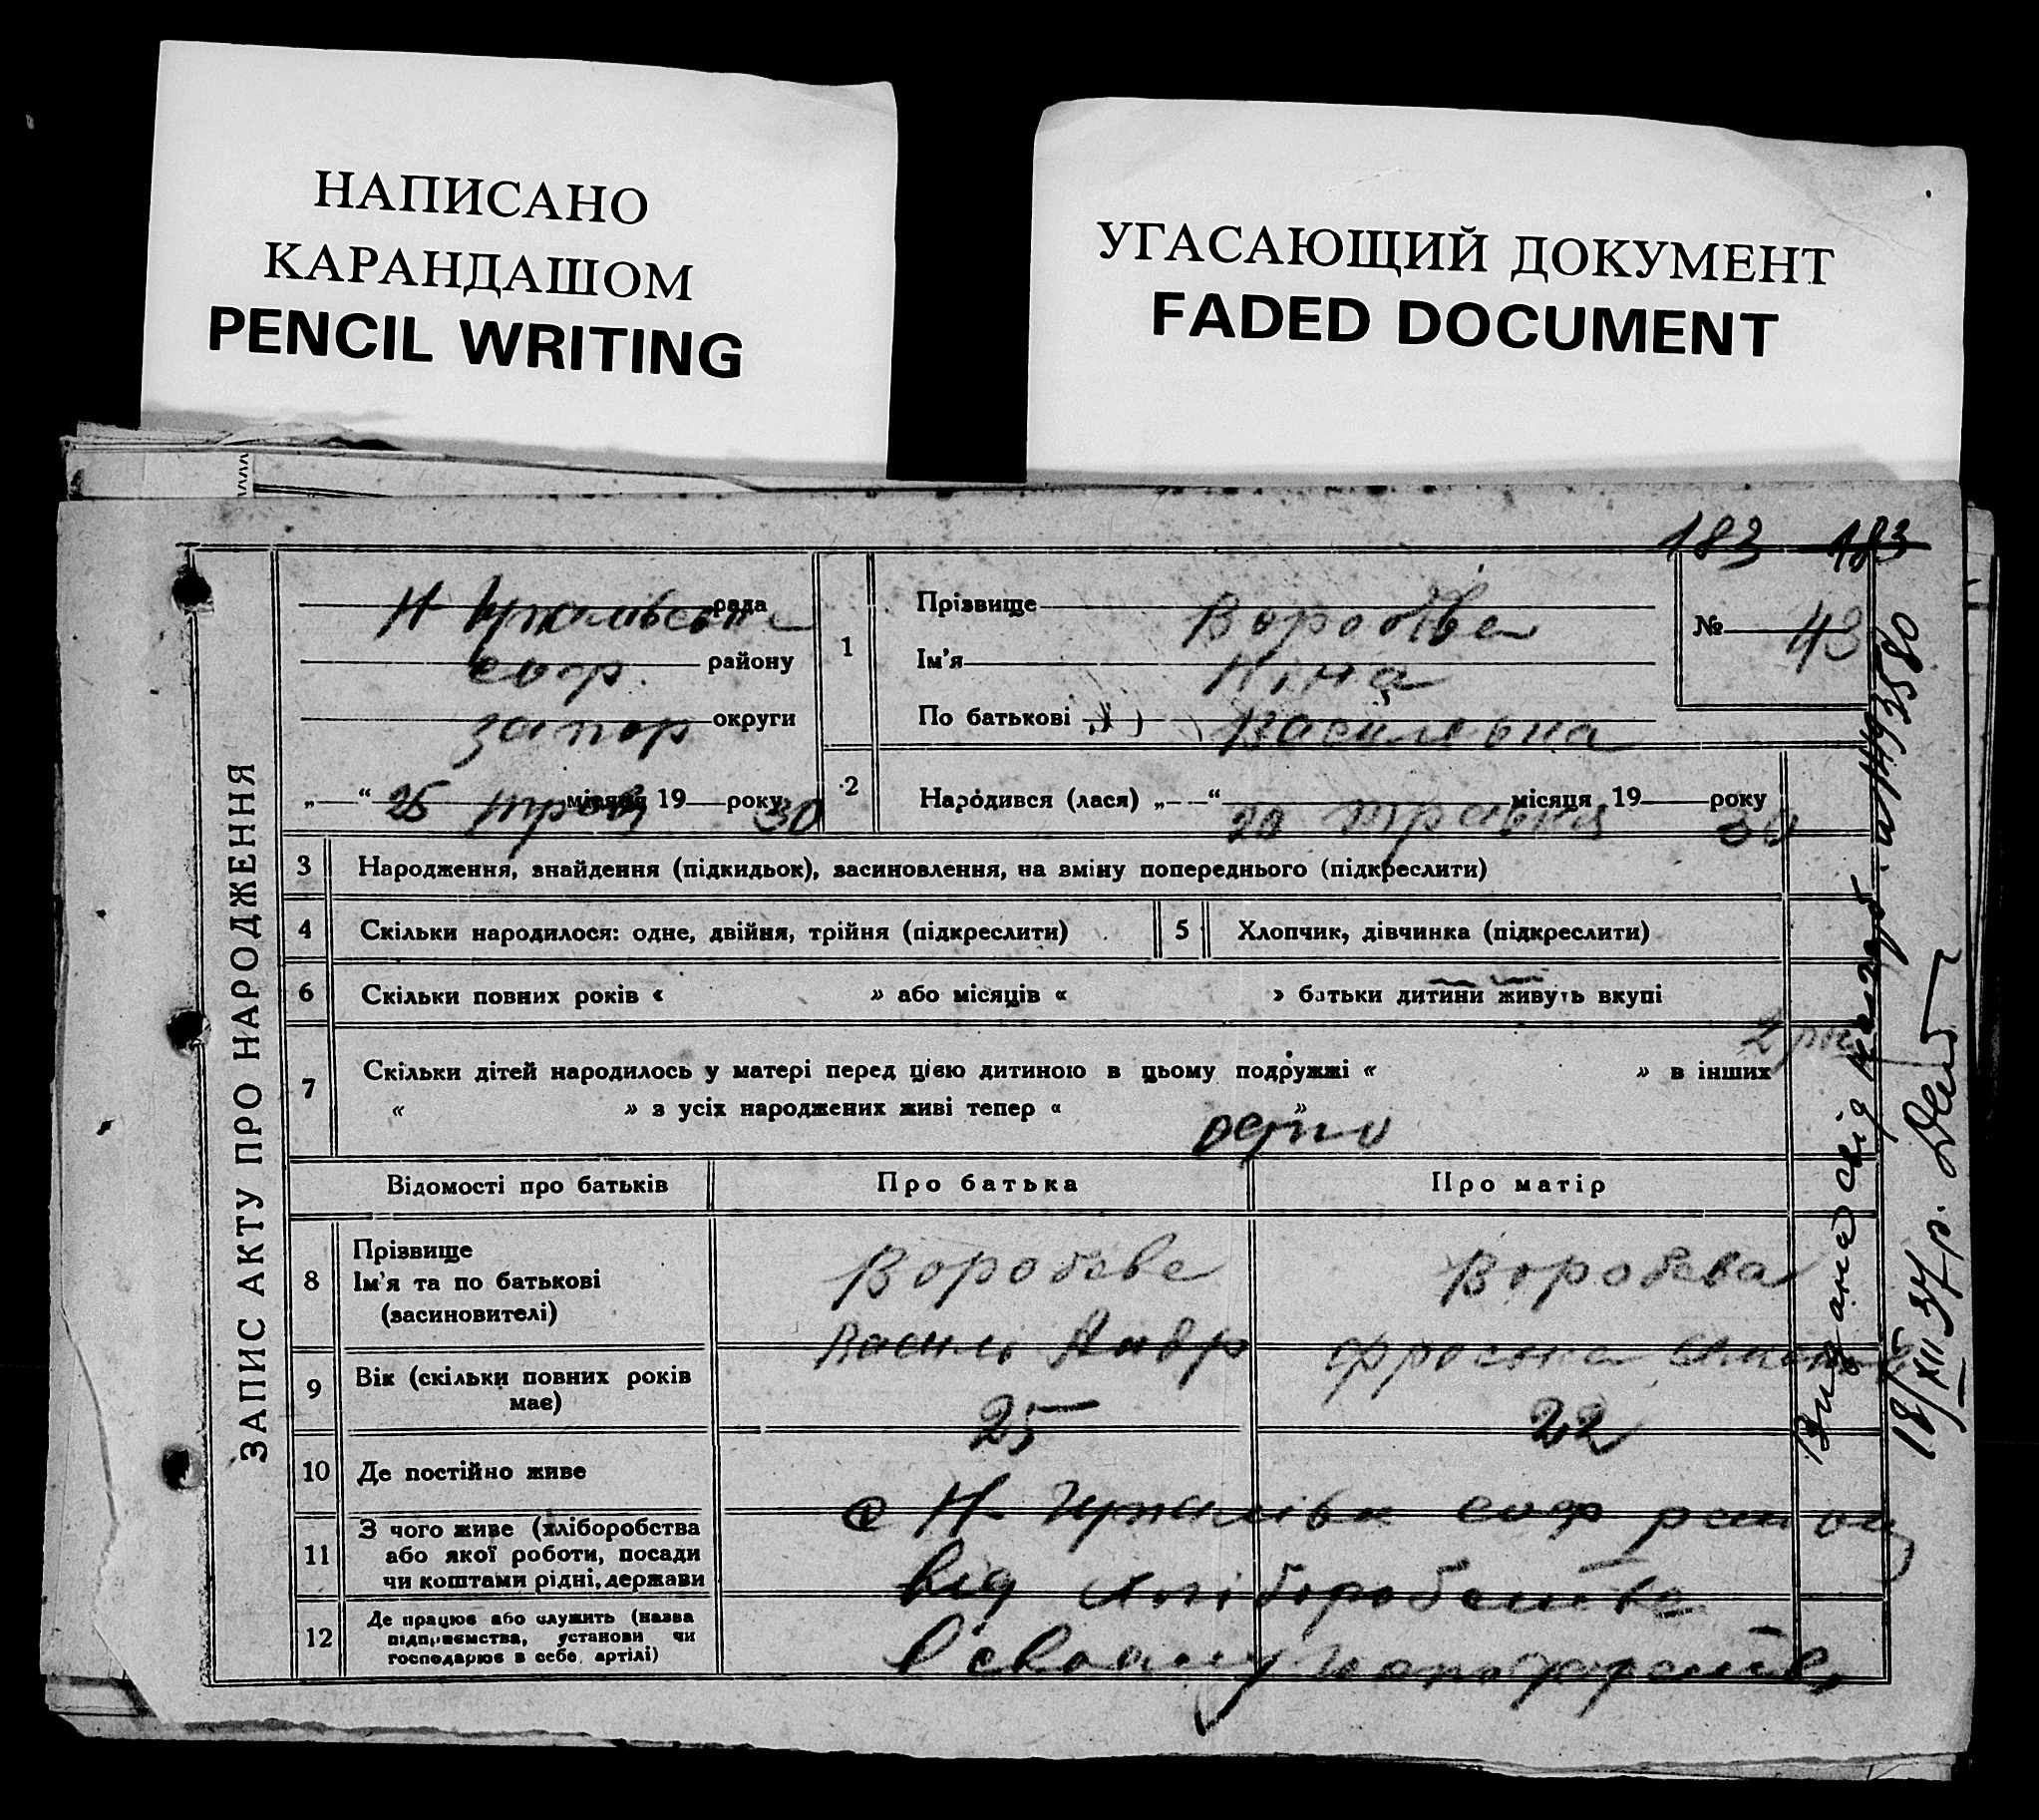 НАПИСАНО
КАРАНДАШОМ
PENCIL WRITING
УГАСАЮЩИЙ ДОКУМЕНТ
FADED DOCUMENT
183 183
ЗАПИС АКТУ ПРО НАРОДЖЕННЯ
рада
соф. району
запор округи
„ “ 25 трав місяця 19 30 року
1
Прізвище Воробйва
Ім'я Ніна
По батькові Василевна
№ 43
2
Народився (лася) „ “ 20 травня місяця 19 30 року
3 Народження, знайдення (підкидьок), засиновлення, на зміну попереднього (підкреслити)
4 Скільки народилося: одне, двійня, трійня (підкреслити)
5 Хлопчик, дівчинка (підкреслити)
6 Скільки повних років « » або місяців « » батьки дитини живуть вкупі
2
7 Скільки дітей народилось у матері перед цією дитиною в цьому подружжі « » в інших
« » з усіх народжених живі тепер « »
одно
Відомості про батьків Про батька Про матір
8 Прізвище
Ім'я та по батькові
(засиновителі)
Воробєве Воробєва
Василь
9 Вік (скільки повних років
має)
25 22
10 Де постійно живе
с Н- соф район
11 З чого живе (хліборобства
або якої роботи, посади
чи коштами рідні, держави
від хліборобства
12 Де працює або служить (назва
підприємства, установи чи
господарює в себе, артілі)
В своему
Видана свід
18/XII 37 р.